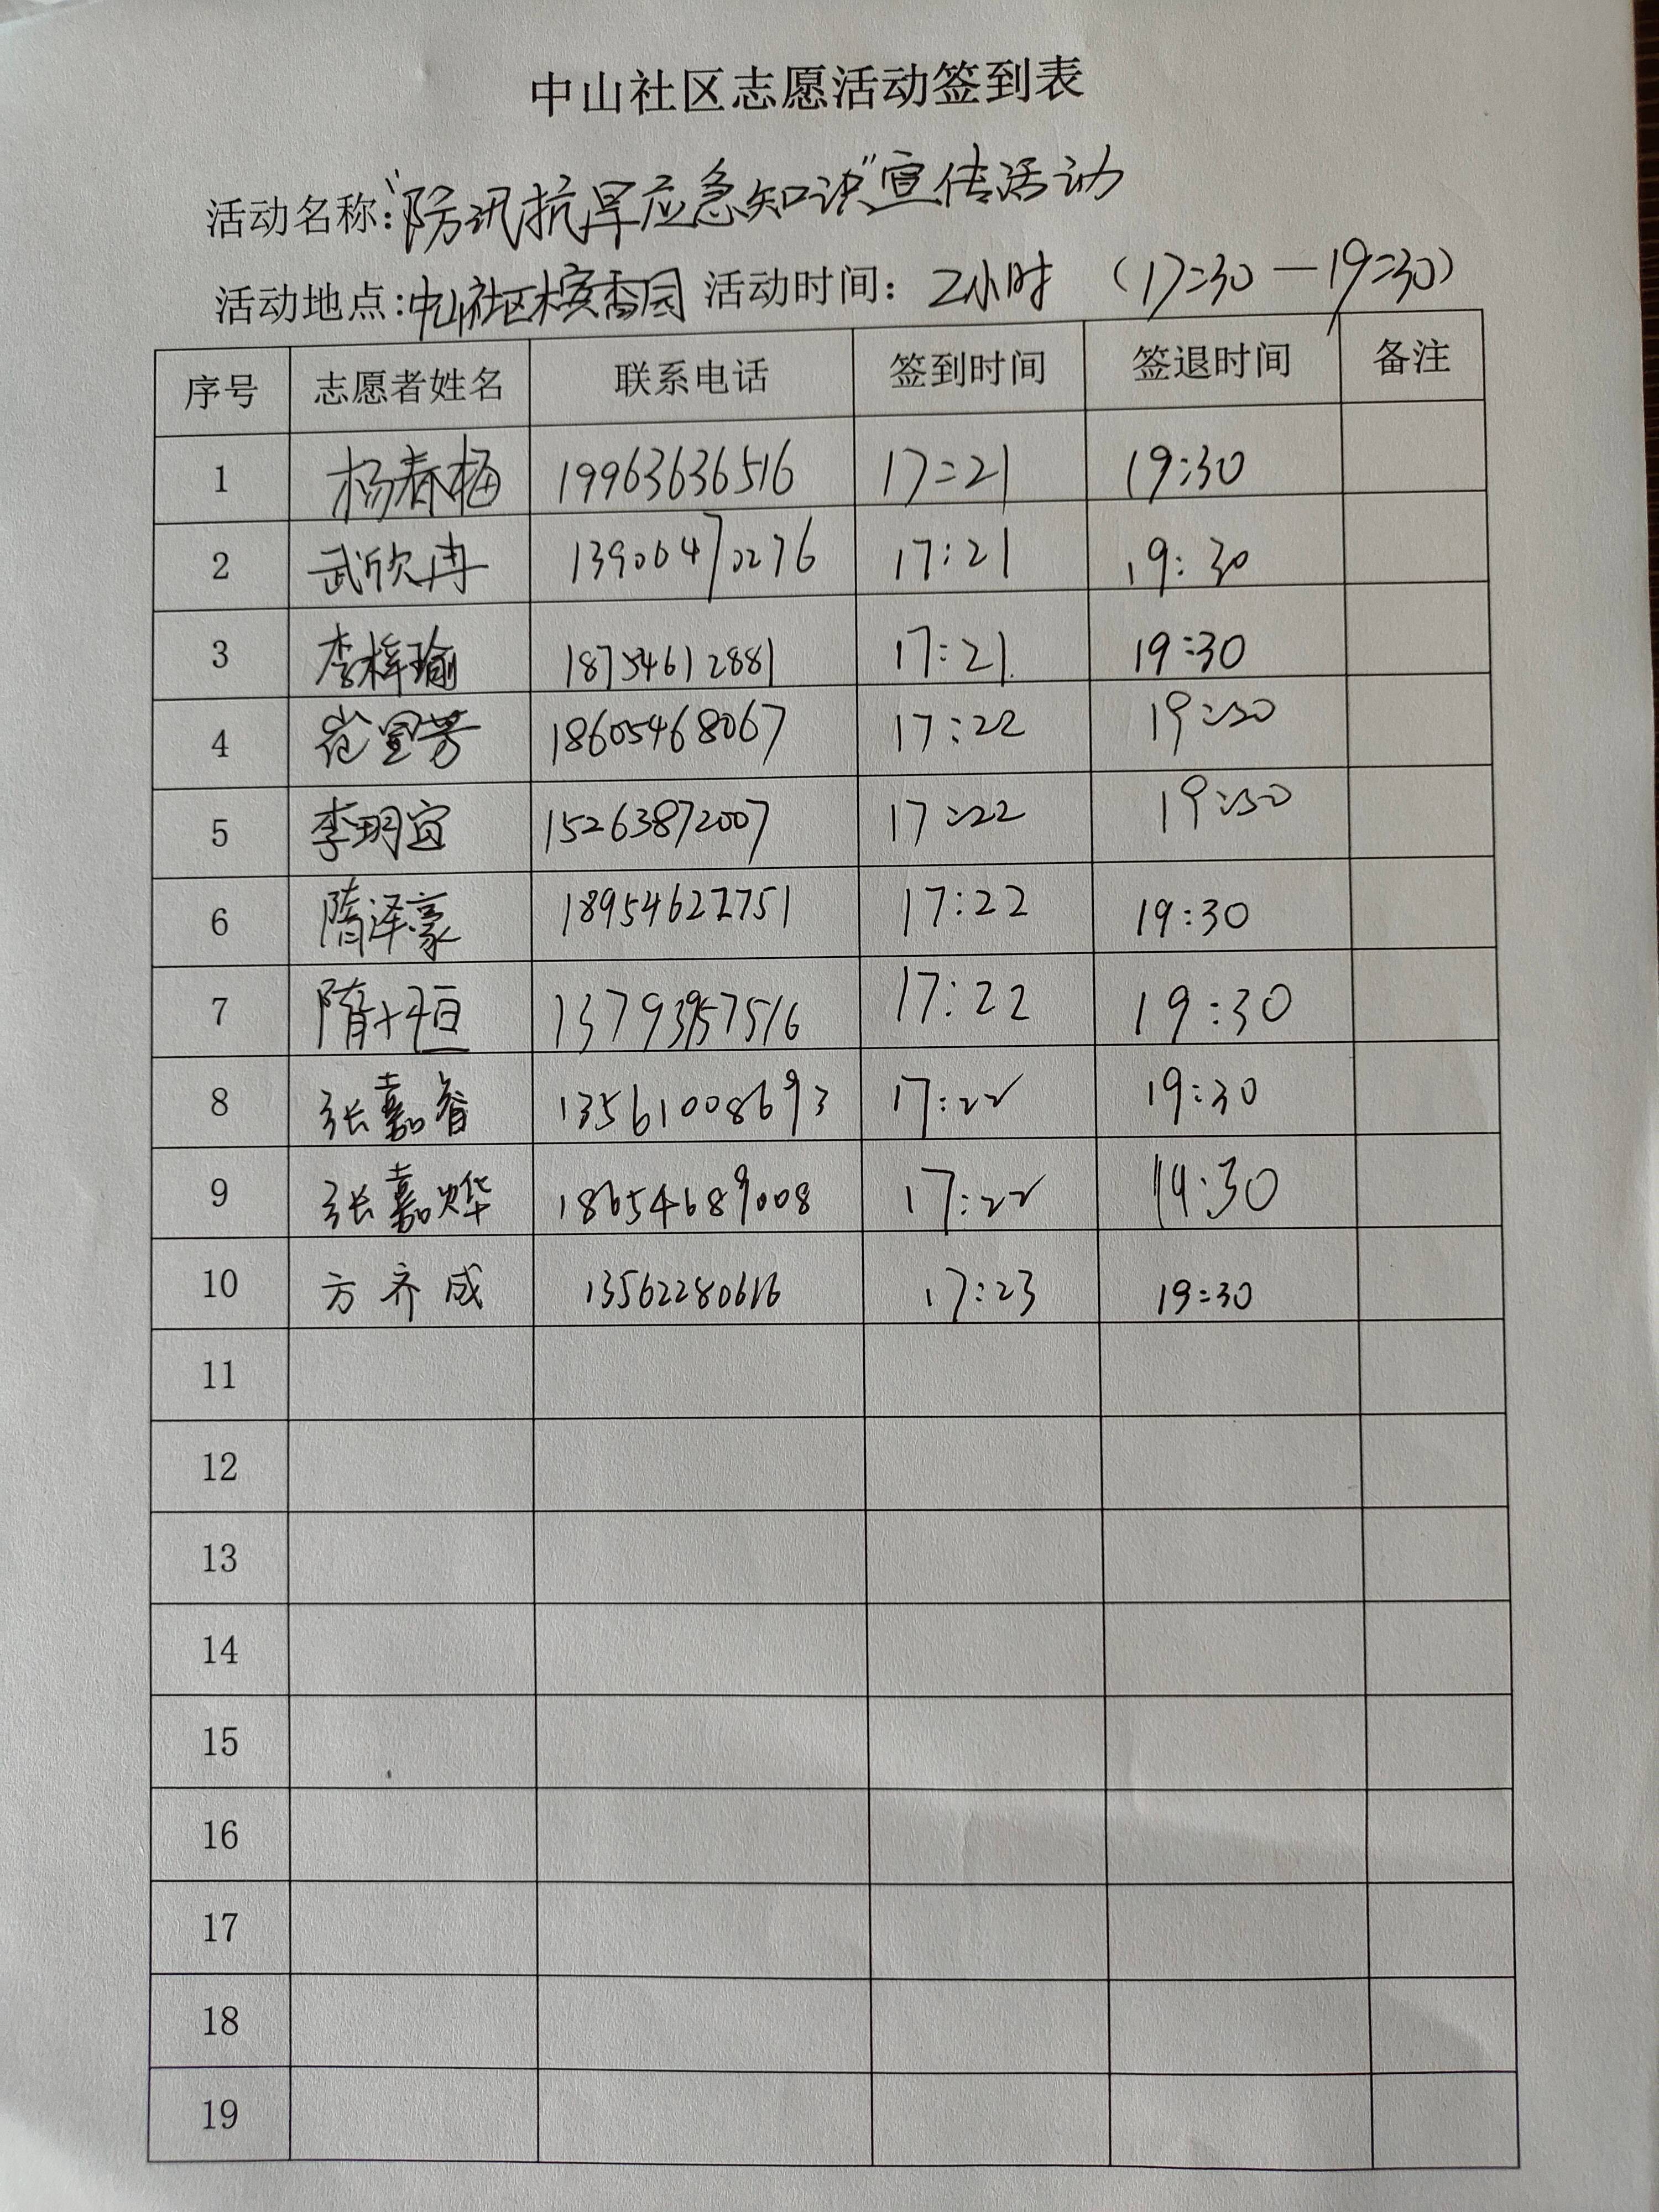 中山社区志愿活动签到表
活动名称:“防汛抗旱应急知识”宣传活动
活动地点:中山社区槟香园 活动时间: 2小时 (17:30—19:30)
序号 志愿者姓名 联系电话 签到时间 签退时间 备注
1 杨春梅 19963636516 17:21 19:30
2 武欣冉 13906470276 17:21 19:30
3 李梓瑜 18754612881 17:21 19:30
4 18605468067 17:22 19:30
5 李玥宜 15263872007 17:22 19:30
6 隋泽豪 17:22 19:30
7 17:22 19:30
8 张嘉睿 13561008693 17:22 19:30
9 张嘉烨 18654689008 17:22 19:30
10 方齐成 13562280616 17:23 19:30
11
12
13
14
15
16
17
18
19